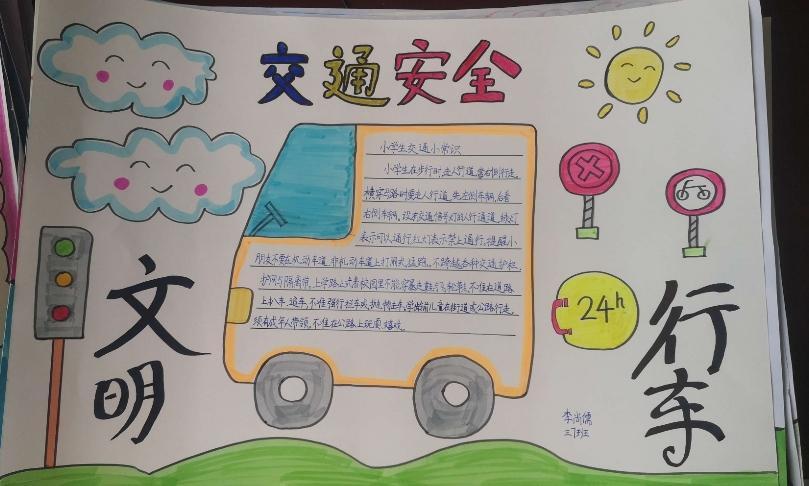 交通安全
小学生交通小常识
小学生在步行时走人行道,靠右侧行走。
横穿马路时要走人行道,先左侧车辆,后看
右侧车辆,没有交通信号灯的人行通道,绿灯
表示可以通行,红灯表示禁止通行,提醒小
朋友不要在机动车道、非机动车道上打闹、猛跑。不跨越各种交通护栏、
护网与隔离带,上学路上或者校园里不能穿暴走鞋
上扒车、追车、不准强行拦车或
须有成年人带领,不准在公路上玩耍、嬉戏。
文明
行车
24h
李尚儒